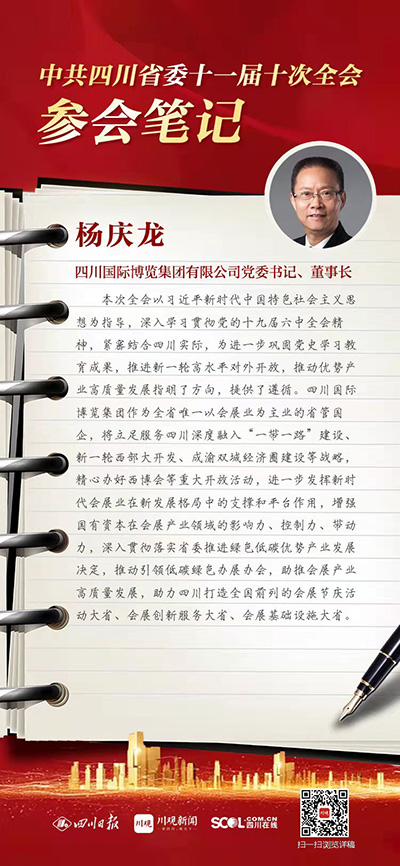 中共四川省委十一届十次全会
参会笔记
杨庆龙
四川国际博览集团有限公司党委书记、董事长
本次全会以习近平新时代中国特色社会主义思
想为指导，深入学习贯彻党的十九届六中全会精
神，紧密结合四川实际，为进一步巩固党史学习教
育成果，推进新一轮高水平对外开放，推动优势产
业高质量发展指明了方向，提供了遵循。四川国际
博览集团作为全省唯一以会展业为主业的省管国
企，将立足服务四川深度融入“一带一路”建设、
新一轮西部大开发、成渝双城经济圈建设等战略，
精心办好西博会等重大开放活动，进一步发挥新时
代会展业在新发展格局中的支撑和平台作用，增强
国有资本在会展产业领域的影响力、控制力、带动
力，深入贯彻落实省委推进绿色低碳优势产业发展
决定，推动引领低碳绿色办展办会，助推会展产业
高质量发展，助力四川打造全国前列的会展节庆活
动大省、会展创新服务大省、会展基础设施大省。
四川日报
川观
川观新闻
SCOL.COM.CN
四川在线
扫一扫浏览详稿